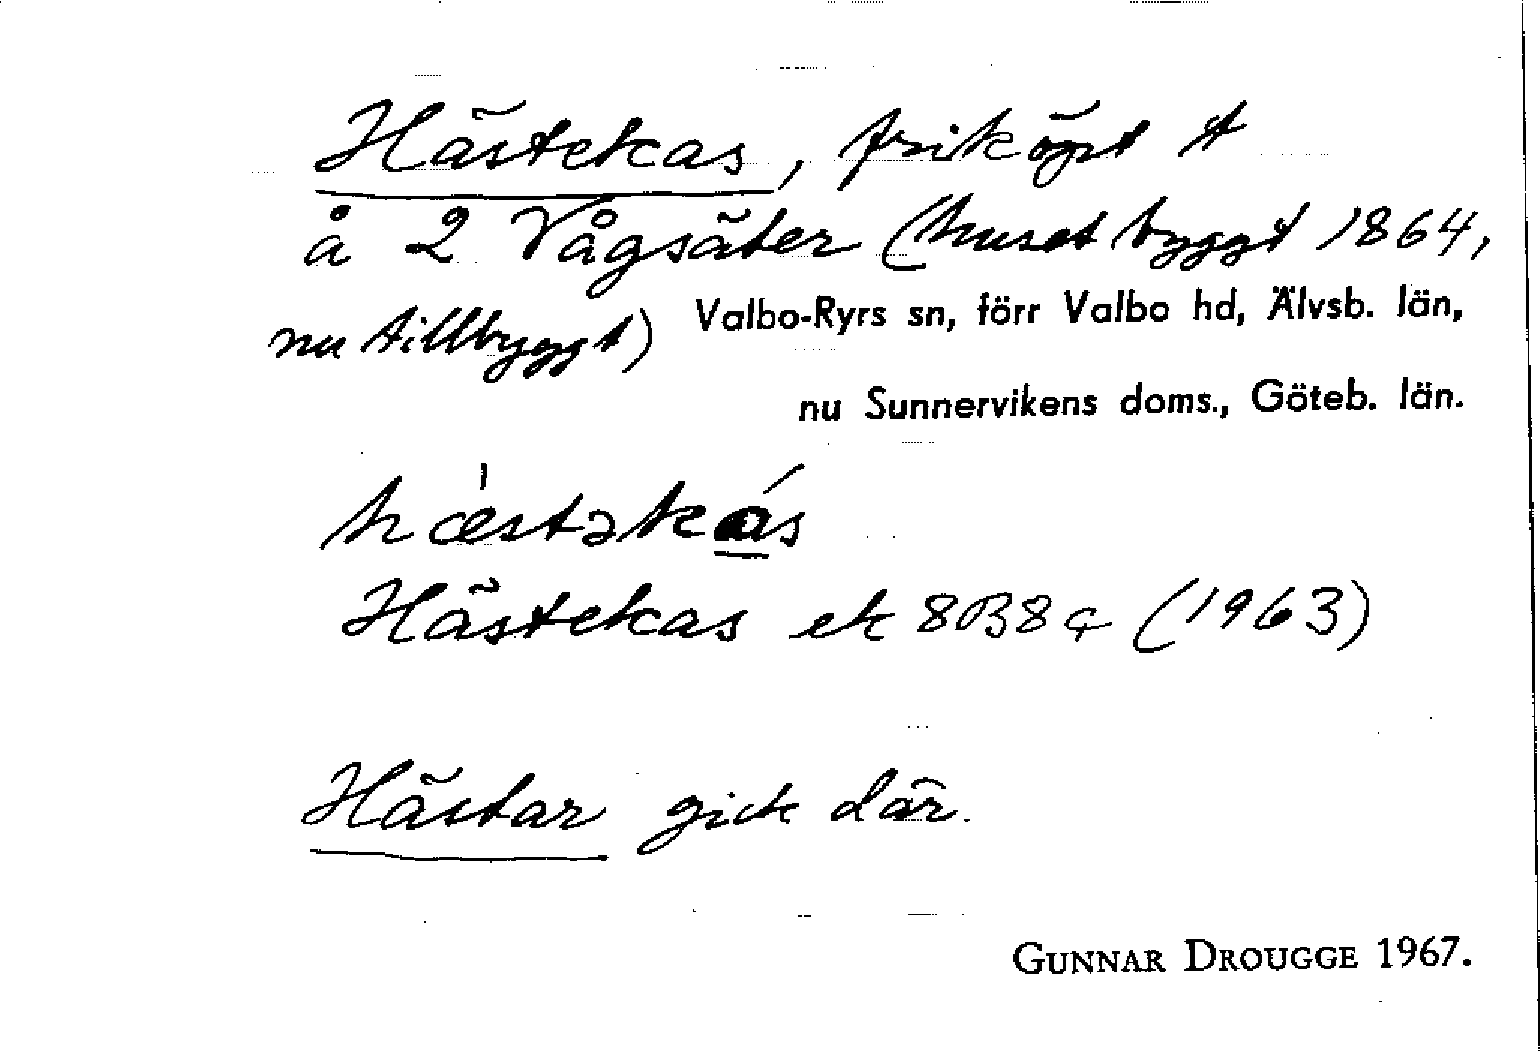 Hästekas, friköpt t
å 2 Vågsäter (huset byggt 1864,
nu tillbyggt) Valbo-Ryrs sn, förr Valbo hd, Älvsb. län,
nu Sunnervikens doms., Göteb. län.
hæ̍stəká̲s
Hästekas ek 8B8ç (1963)
Hästar gick där.
GUNNAR DROUGGE 1967.